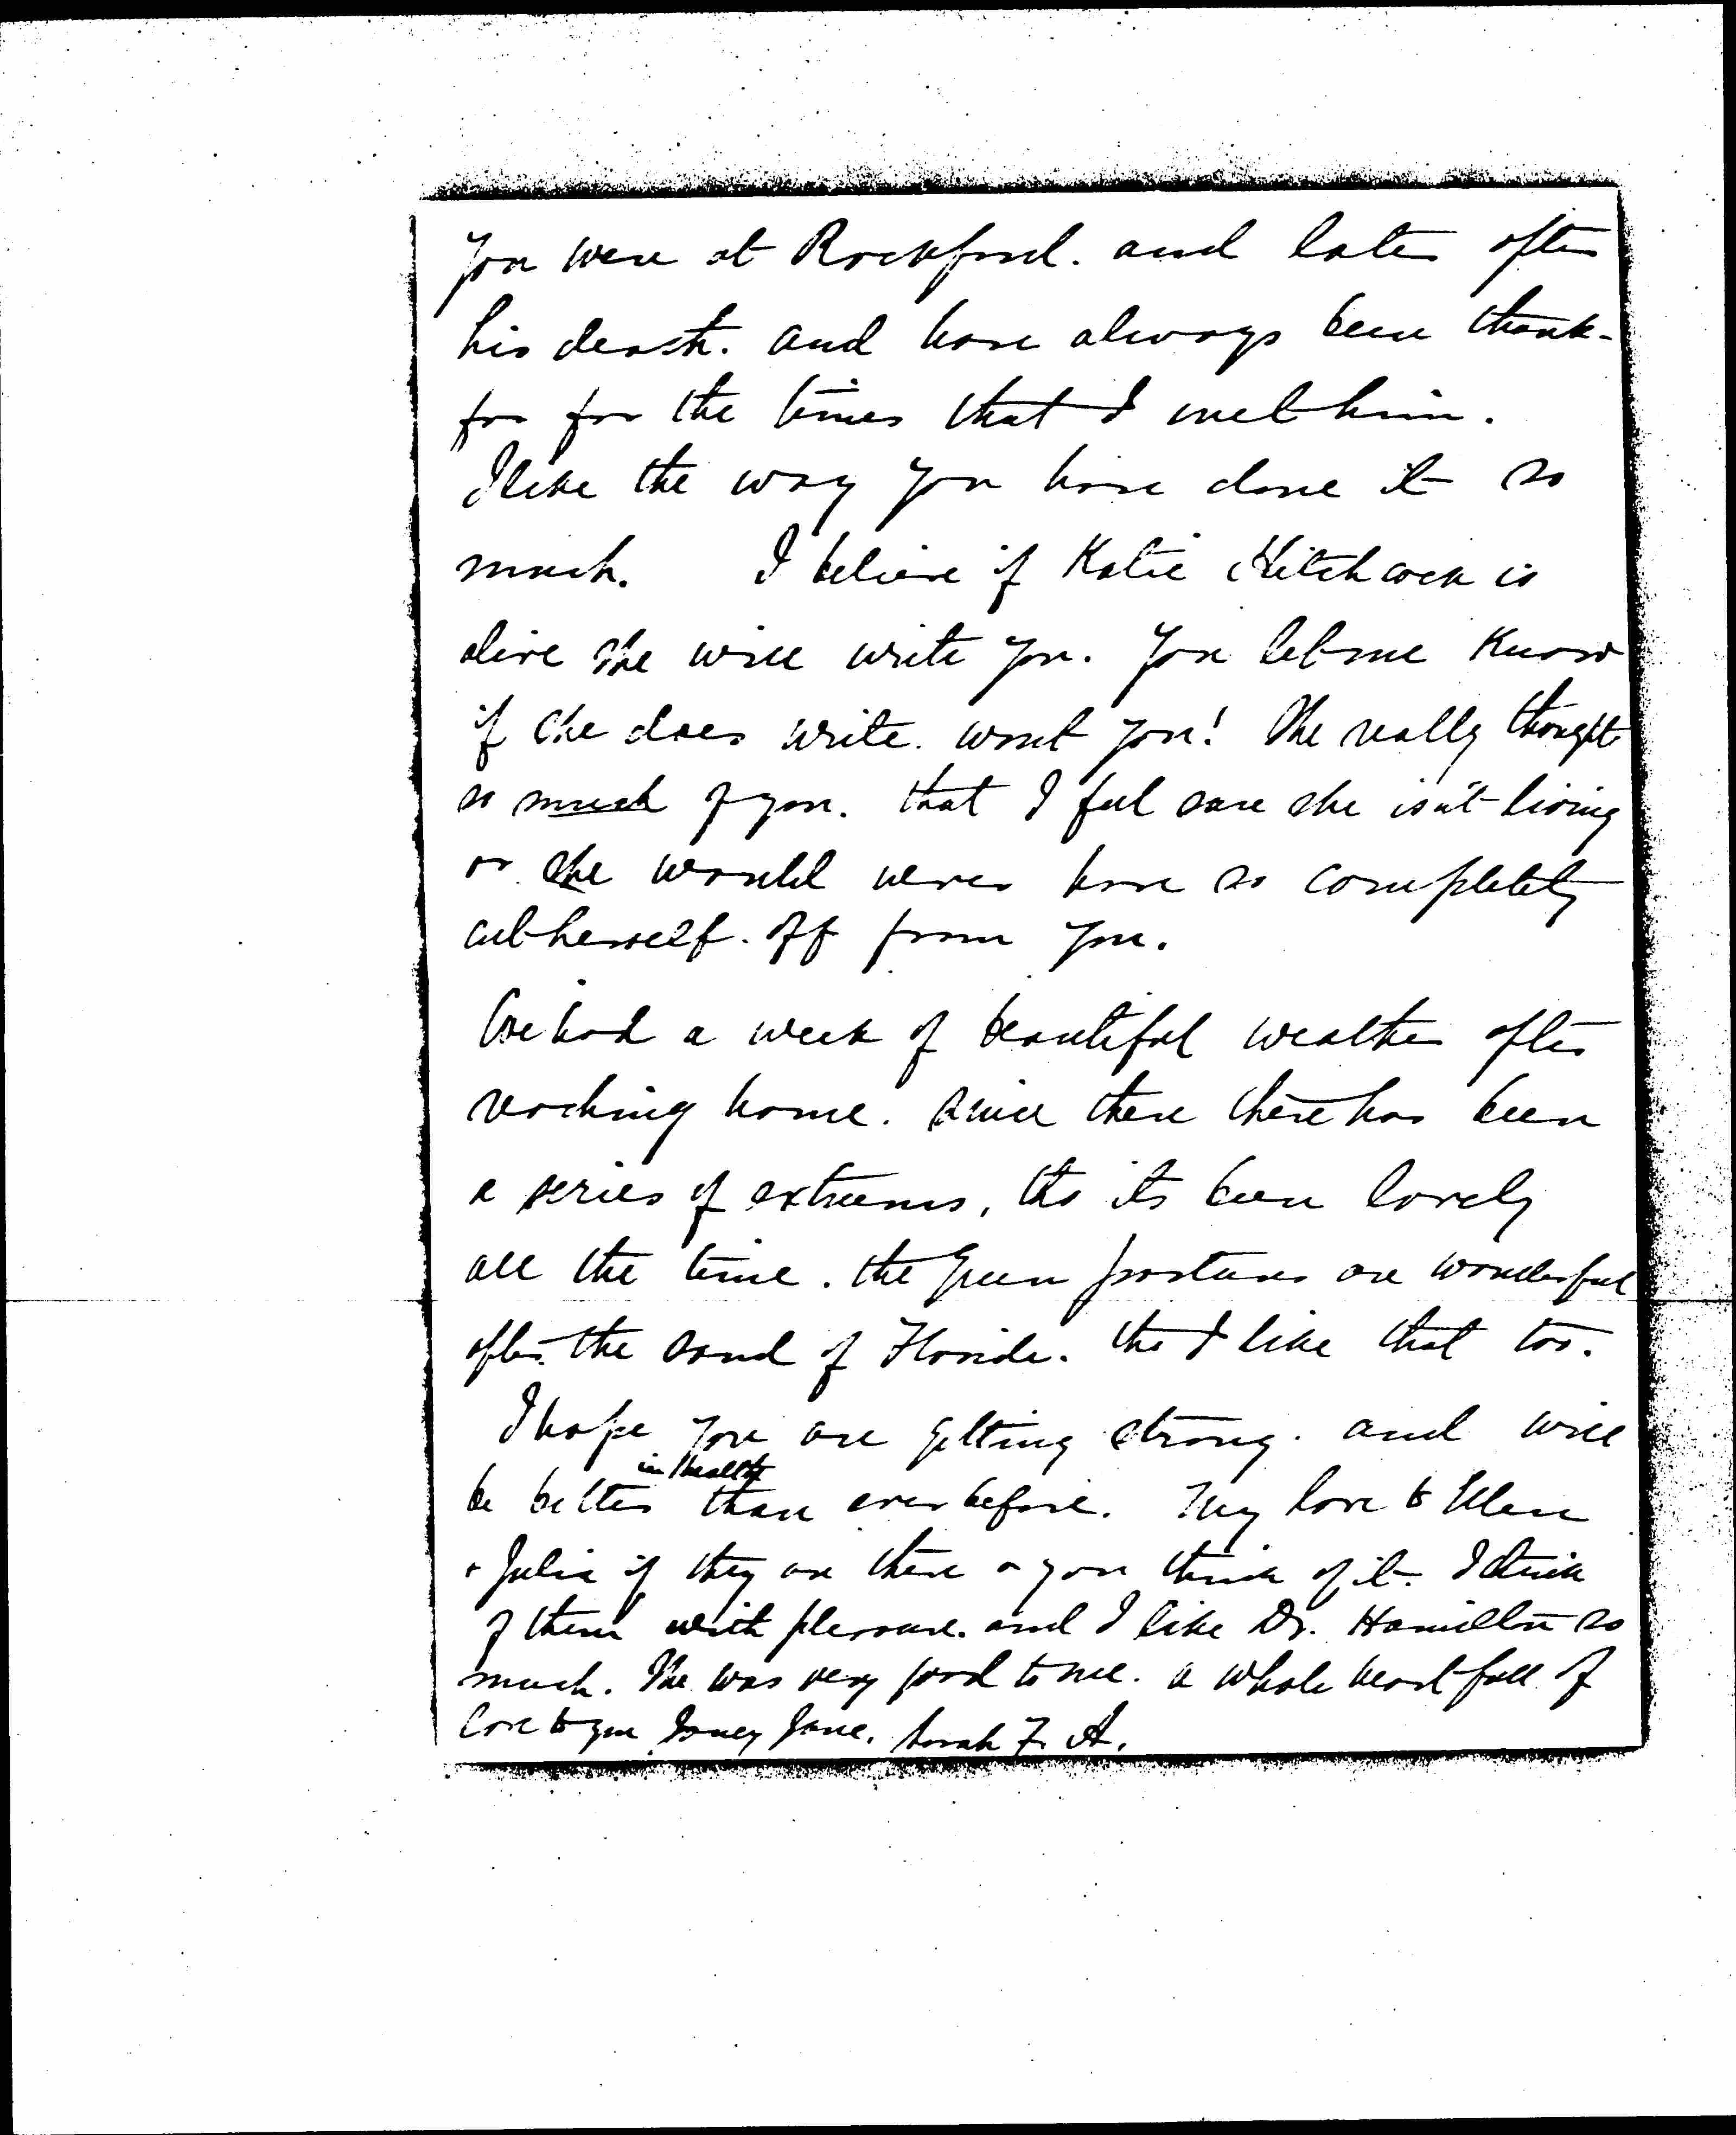 you were at Rockford. and later after
his death. and have always been thank-
for for the times that I met him.
I like the way you have done it so
much. I believe if Katie Hitchcock is
alive she will write you. You let me know
if she does write. wont you! She really thought
so much of you. that I feel sure she isn't living
or she would never have so completely
cut herself. off from you.
We had a week of beautiful weather after
reaching home. since then there has been
a series of extreems, tho its been lovely
all the time. the green pastures are wonderful
after the sand of Florida. tho I like that too.
I hope you are getting strong. and will
in health
be better than ever before. My love to Ellen
+ Julia if they are there & you think of it. I think
of them with pleasure. and I like Dr. Hamilton so
much. She was very good to me. a whole heart full of
love to you Jane. Sarah F. A.